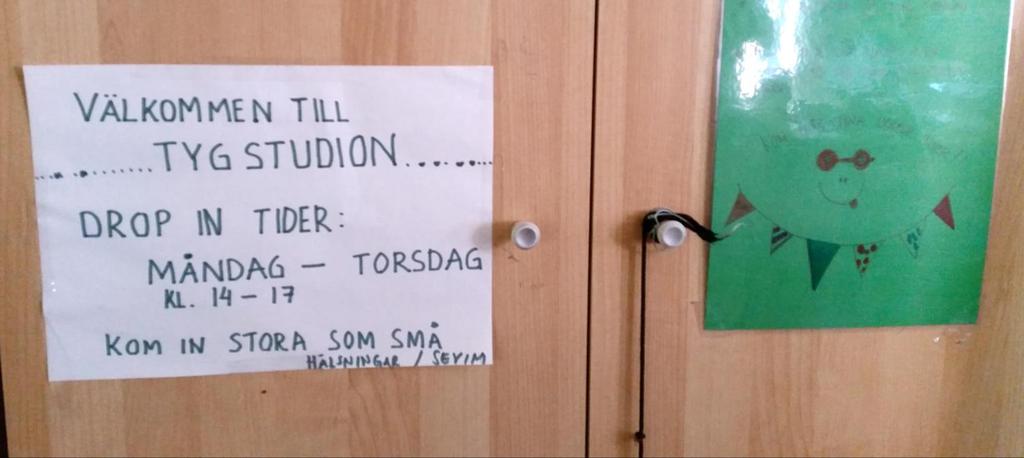 VÄLKOMMEN TILL
........TYG STUDION........
DROP IN TIDER:
MÅNDAG – TORSDAG
KL. 14 – 17
KOM IN STORA SOM SMÅ
HÄLSNINGAR / SEVIM